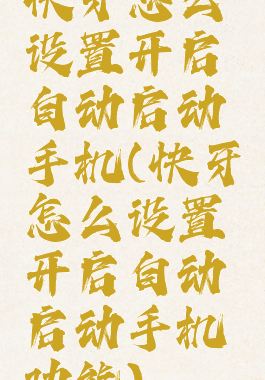 快牙怎么
设置开启
自动启动
手机(快牙
怎么设置
开启自动
启动手机
功能)